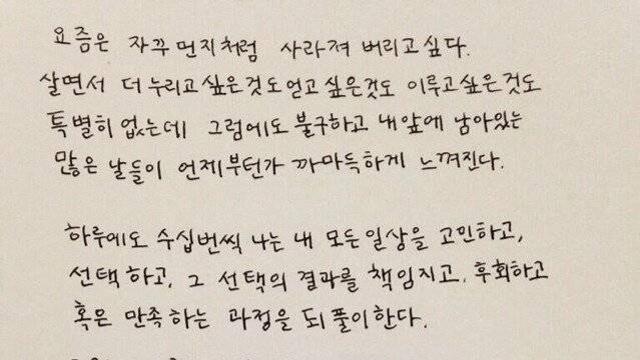 요즘은 자꾸 먼지처럼 사라져 버리고 싶다.
살면서 더 누리고 싶은것도 얻고 싶은것도 이루고 싶은 것도
특별히 없는데 그럼에도 불구하고 내 앞에 남아있는
많은 날들이 언제부턴가 까마득하게 느껴진다.
하루에도 수십번씩 나는 내 모든 일상을 고민하고,
선택하고, 그 선택의 결과를 책임지고, 후회하고
혹은 만족하는 과정을 되풀이한다.